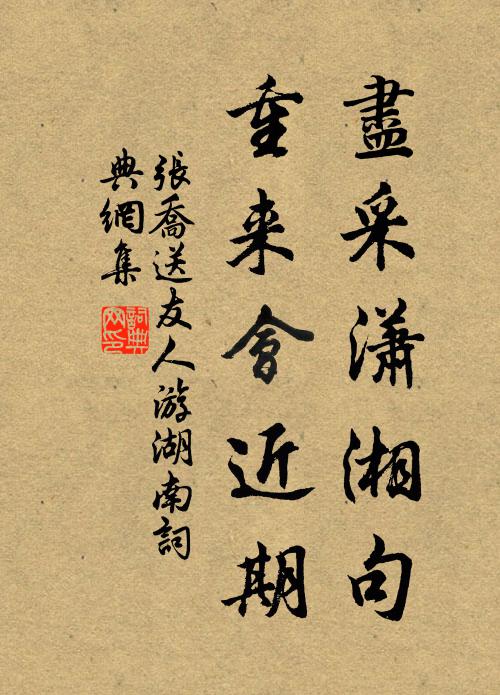 盡采瀟湘句
重来會近期
張喬送友人游湖南詞
典網集
詞典
网印